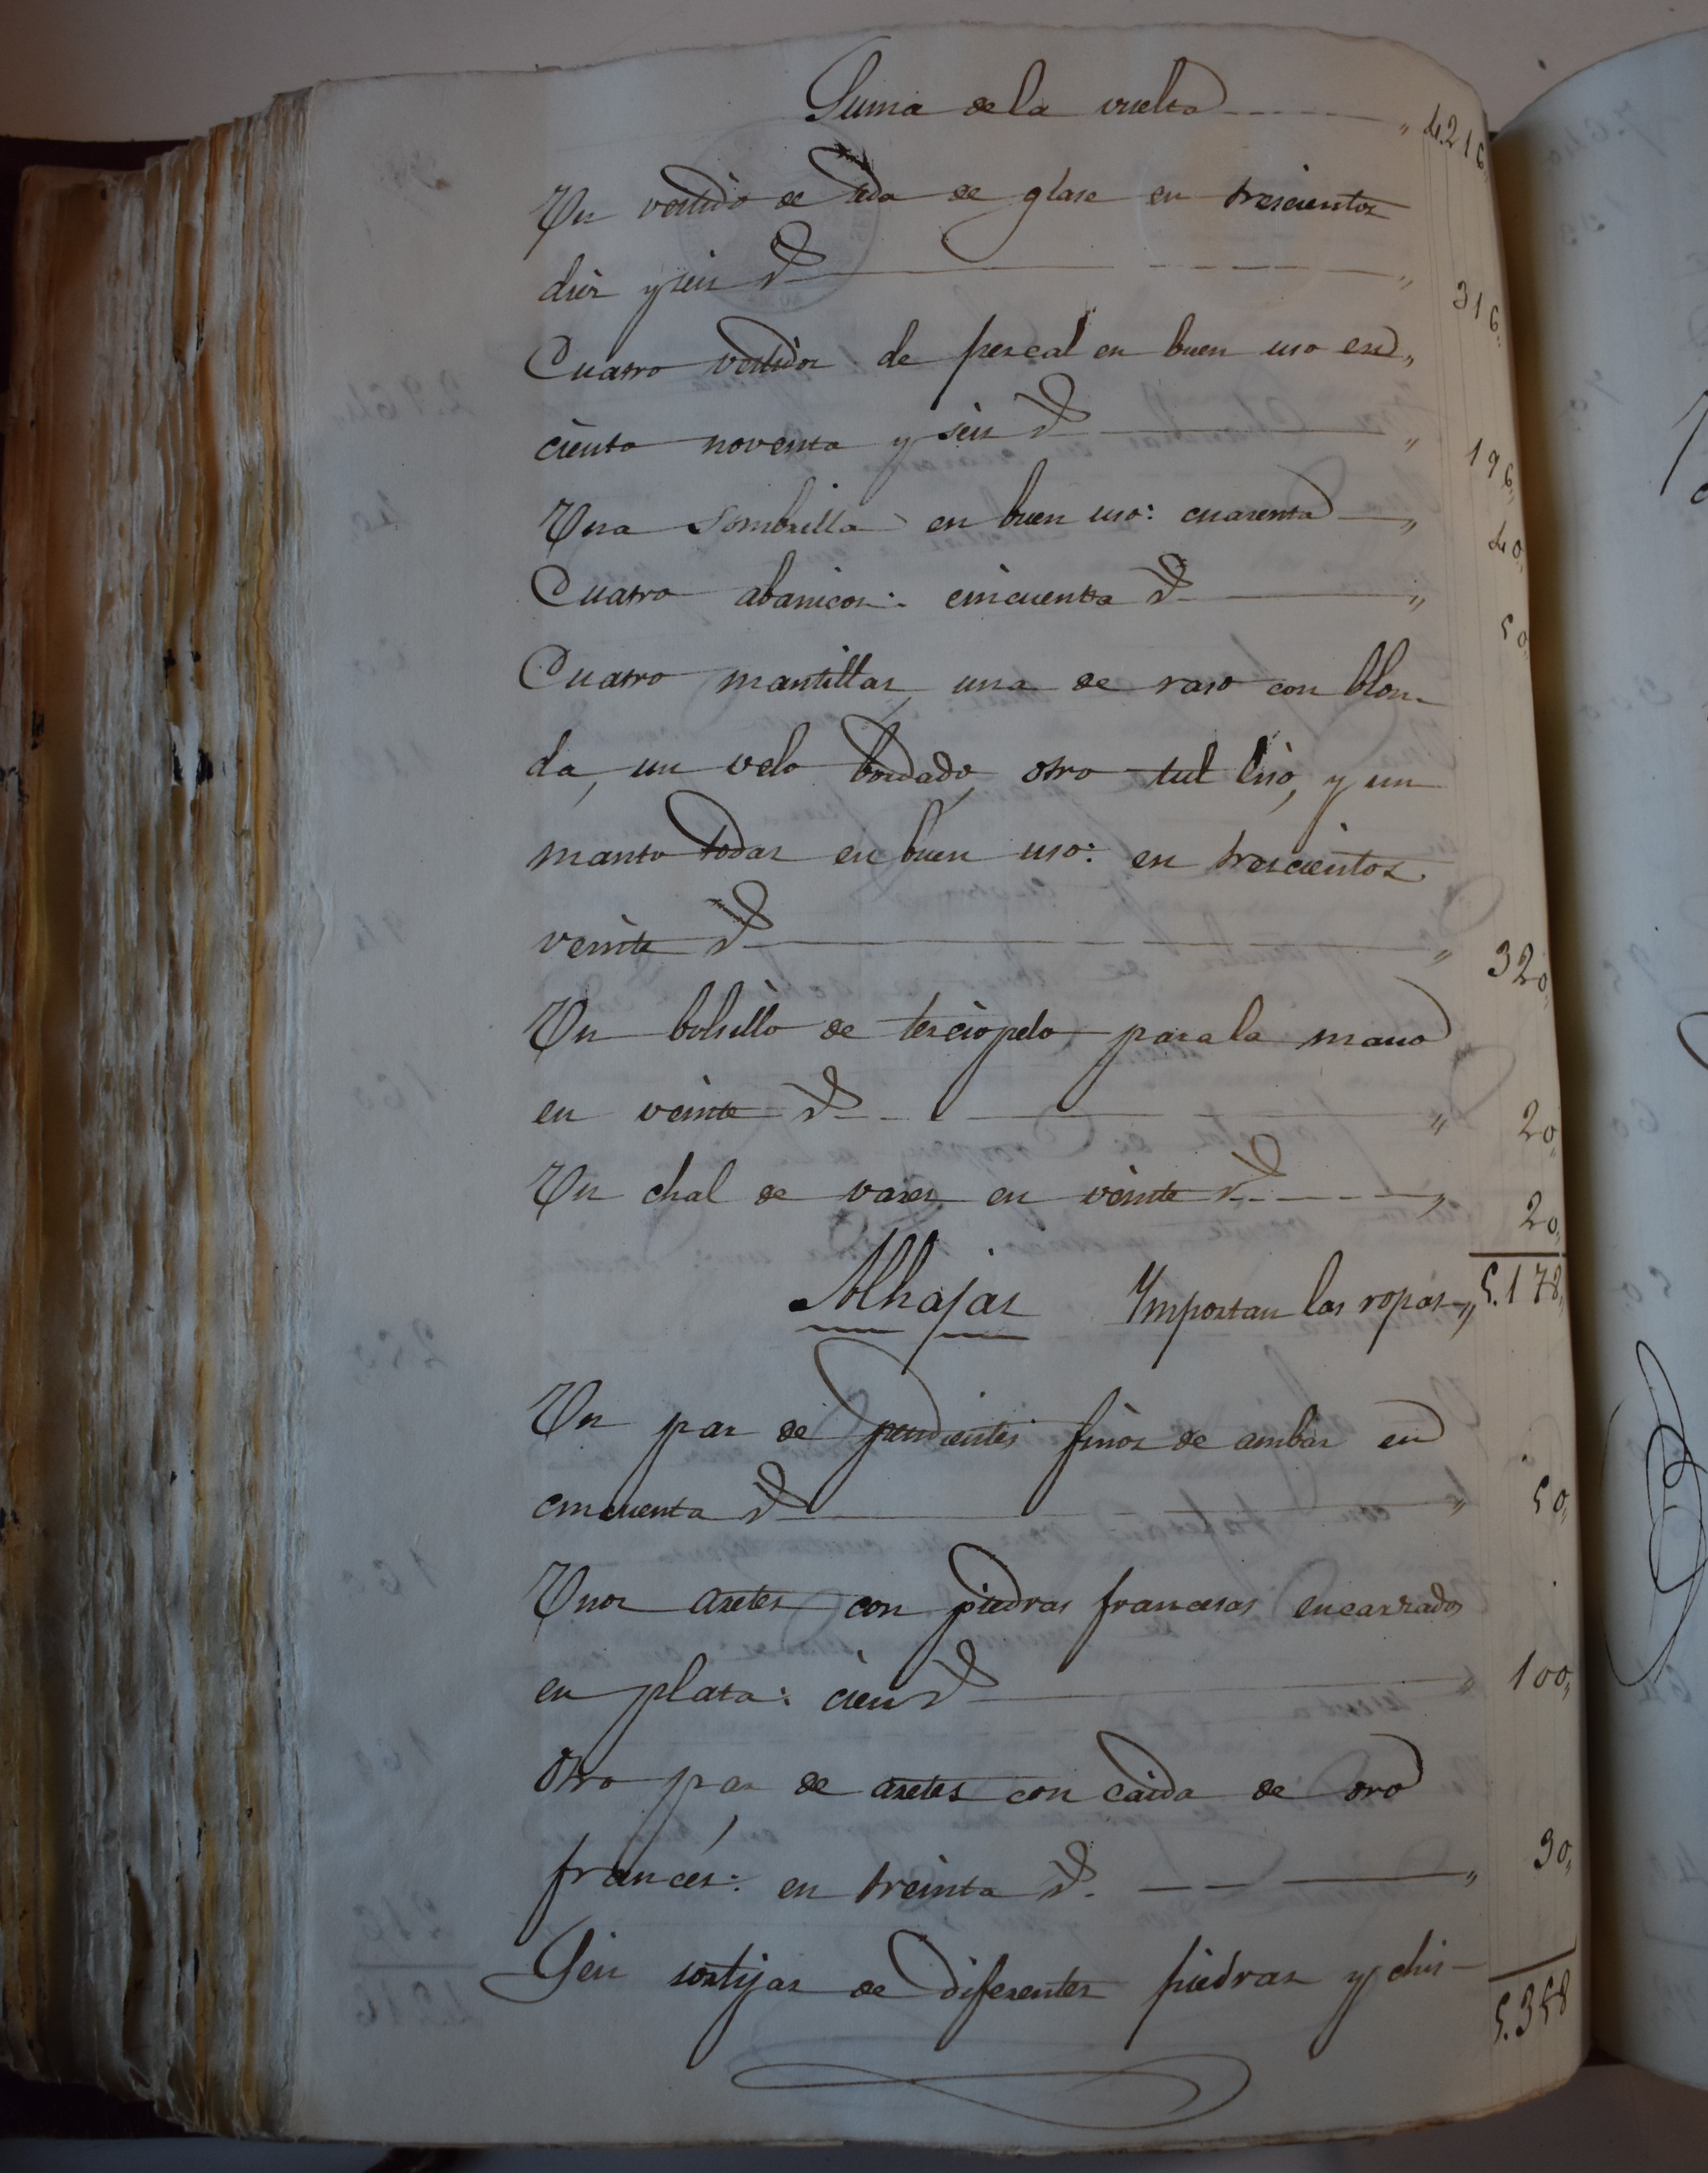 Suma de la vuelta ,, 4.216,,
Un vestido de seda de glase en trescientos
diez y seis rs ,, 316,,
Cuatro vestidos de percal en buen uso en ,,
ciento noventa y seis rs ,, 196,,
Una sombrilla en buen uso: cuarenta ,, 40,,
Cuatro abanicos: cincuenta rs ,, 50,,
Cuatro mantillas, una de raso con blon-
da, un velo bordado, otro tul liso, y un
manto todas en buen uso: en trescientos
veinte rs ,, 320,,
Un bolsillo de terciopelo para la mano
en veinte rs ,, 20,,
Un chal de vares en veinte rs ,, 20,,
Alhajas Ymportan las ropas ,, 5.178,,
Un par de pendientes finos de ambar en
cincuenta rs ,, 50,,
Unos aretes con piedras francesas encarzados
en plata: cien rs ,, 100,,
Otro par de aretes con caida de oro
francés: en treinta rs. ,, 30,,
Seis sortijas de diferentes piedras y chis-
5.358